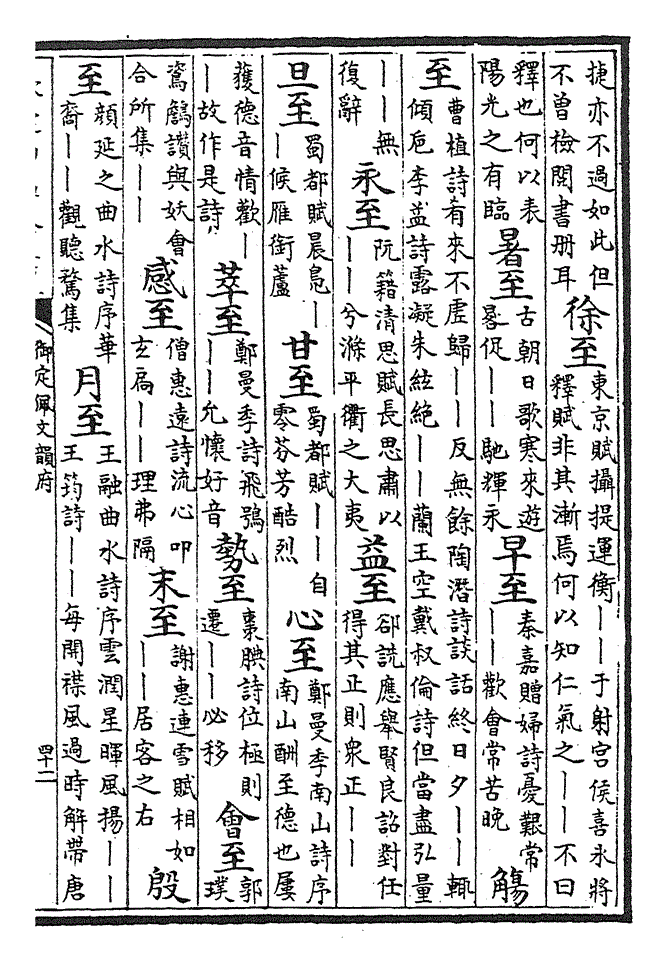 捷亦不過如此但不曾檢閱書册耳 徐至 東京賦攝提運衡——于射宮侯喜氷將釋賦非其漸焉何以知仁氣之——不曰
釋也何以表陽光之有臨 暑至 古朝日歌寒來遊晷促——馳輝永 早至 秦嘉贈婦詩憂艱常——歡會常苦晚 觴
至 曹植詩肴來不虛歸——反無餘陶潛詩談話終日夕——輒傾卮李益詩露凝朱絃絶——蘭王空戴叔倫詩但當盡弘量
——無復辭 永至 阮籍清思賦長思肅以——兮滌平衢之大夷 益至 郤詵應舉賢良詔對任得其正則衆正——
旦至 蜀都賦晨鳧——候雁銜蘆 甘至 蜀都賦——自零芬芳酷烈 心至 鄭曼季南山詩序南山酬至德也屢
獲德音情歡——故作是詩 萃至 鄭曼季詩飛鴞——允懷好音 勢至 棗腆詩位極則遷——必移 會至 郭璞
讚與妖會合所集—— 感至 僧惠遠詩流心叩玄扃——理弗隔 末至 謝惠連雪賦相如——居客之右 殷
至 顔延之曲水詩序華裔——觀聽騖集 月至 王融曲水詩序雲潤星暉風揚——王筠詩——每開襟風過時解帶唐
御定佩文韻府
四十二